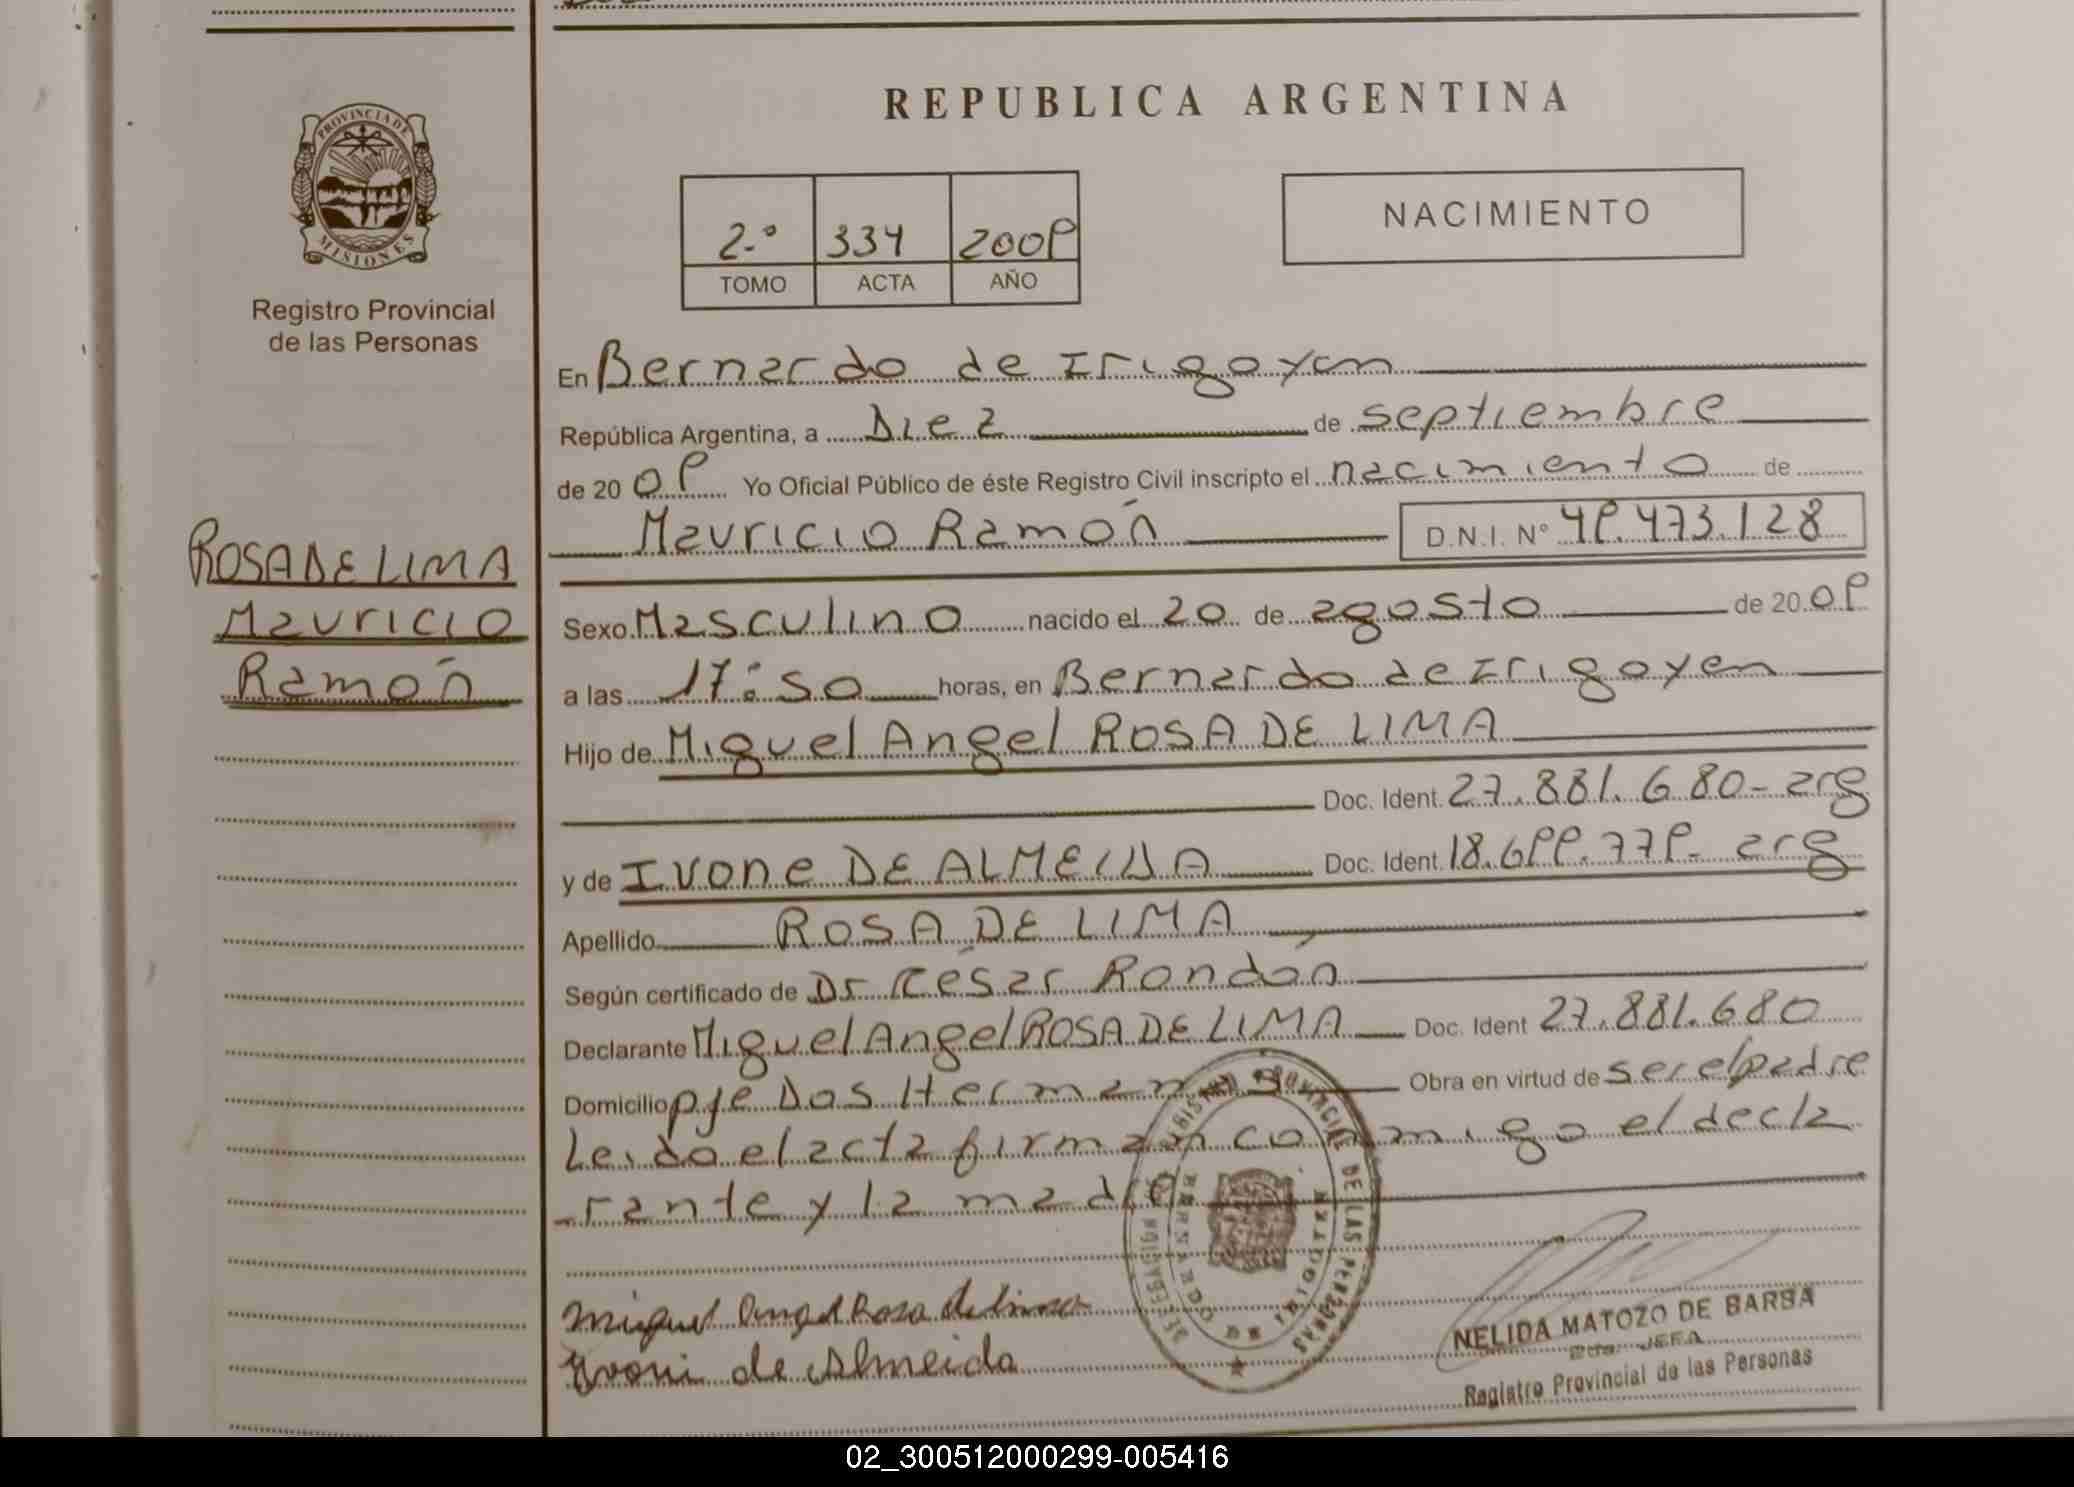 REPUBLICA ARGENTINA
PROVINCIA DE
MISIONES
Registro Provincial
de las Personas
2.º 334 2009
TOMO ACTA AÑO
NACIMIENTO
En Bernardo de Irigoyen
República Argentina, a Diez de septiembre
de 2009 Yo Oficial Público de éste Registro Civil inscripto el nacimiento de
Mauricio Ramón D.N.I. Nº 49.473.128
ROSA DE LIMA
Mauricio
Ramón
Sexo Masculino nacido el 20 de agosto de 2009
a las 17:50 horas, en Bernardo de Irigoyen
Hijo de Miguel Angel ROSA DE LIMA
Doc. Ident. 27.881.680- arg
y de Ivone DE ALMEIDA Doc. Ident. 18.699.779- arg
Apellido ROSA DE LIMA
Según certificado de Dr César Rondón
Declarante Miguel Angel ROSA DE LIMA Doc. Ident 27.881.680
Domicilio pje Dos Hermanas Obra en virtud de ser el padre
Leido el acta firman conmigo el decla
-rante y la madre
REGISTRO PROVINCIAL DE LAS PERSONAS
DELEGACION
BERNARDO DE IRIGOYEN
Miguel Angel Rosa de lima
Ivoni de Almeida
NELIDA MATOZO DE BARBA
JEFA
Registro Provincial de las Personas
02_300512000299-005416